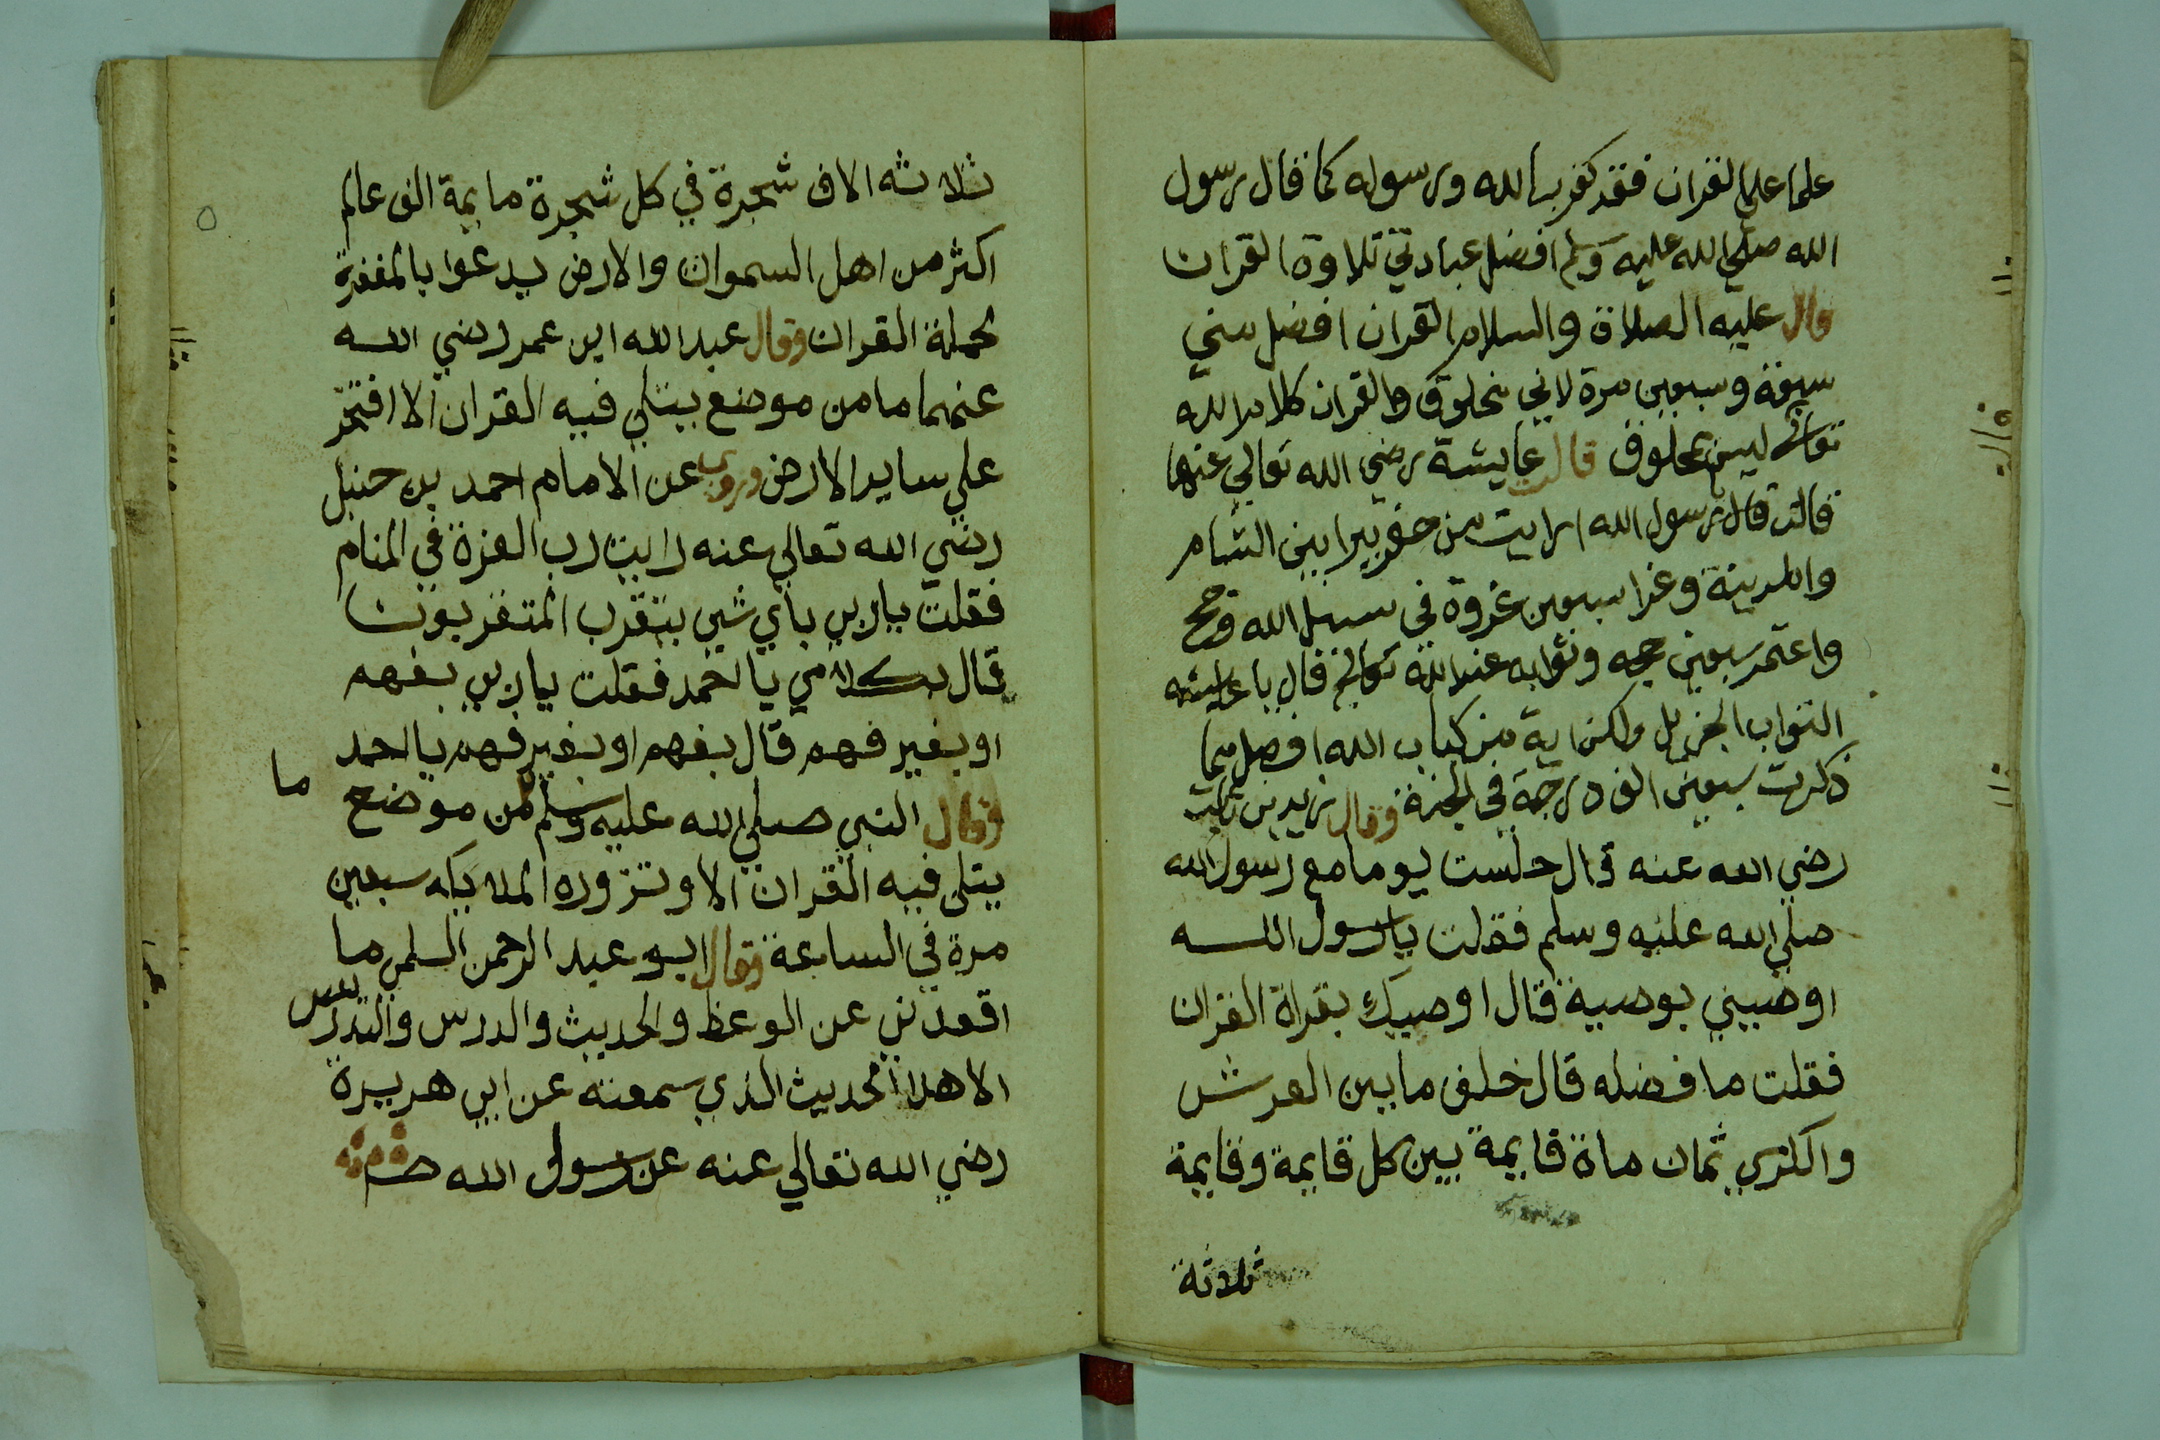 علما علي القران فقد كفر بالله ورسوله كما قال رسول
الله صلي الله عليه وسلم افضل عبادتي تلاوة القران
وقال عليه الصلاة والسلام القران افضل مني
سبعة وسبعين مرة لاني مخلوق والقران كلام الله
تعالي ليس بمخلوق قالت عايشة رضي الله تعالي عنها
قالت قال رسول الله ارايت من حفر بيرا بين الشام
والمدينة وغزا سبعين غزوة في سبيل الله وحج
واعتمر سبعين حجه وثوابه عند الله تعالي قال يا عايشه
الثواب الجزيل ولكن اية من كتاب الله افضل مما
ذكرت سبعين الف درجة في الجنة وقال زيد بن ثابت
رضي الله عنه قال جلست يوما مع رسول الله
صلي الله عليه وسلم فقلت يا رسول الله
اوصيني بوصية قال اوصيك بقراة القران
فقلت ما فضله قال خلف ما بين العرش
والكرسي ثمان ماة قايمة بين كل قايمة وقايمة
ثلاثة
ثلاثه الاف شجرة في كل شجرة ماية الف عالم
اكثر من اهل السموات والارض يدعوا بالمغفرة
لحملة القران وقال عبد الله ابن عمر رضي الله
عنهما ما من موضع يتلي فيه القران الا افتخر
علي ساير الارض وروي عن الامام احمد بن حنبل
رضي الله تعالي عنه رايت رب العزة في المنام
فقلت يا ربي باي شي يتقرب المتقربون
قال بكلامي يا احمد فقلت يا ربي بفهم
او بغير فهم قال بفهم او بغير فهم يا احمد
وقال النبي صلي الله عليه وسلم من موضع
ما
يتلي فيه القران الا وتزوره الملايكه سبعين
مرة في الساعة وقال ابو عبد الرحمن السلمي ما
اقعدني عن الوعظ والحديث والدرس والتدريس
الا هذا الحديث الذي سمعته عن ابي هريرة
رضي الله تعالي عنه عن رسول الله